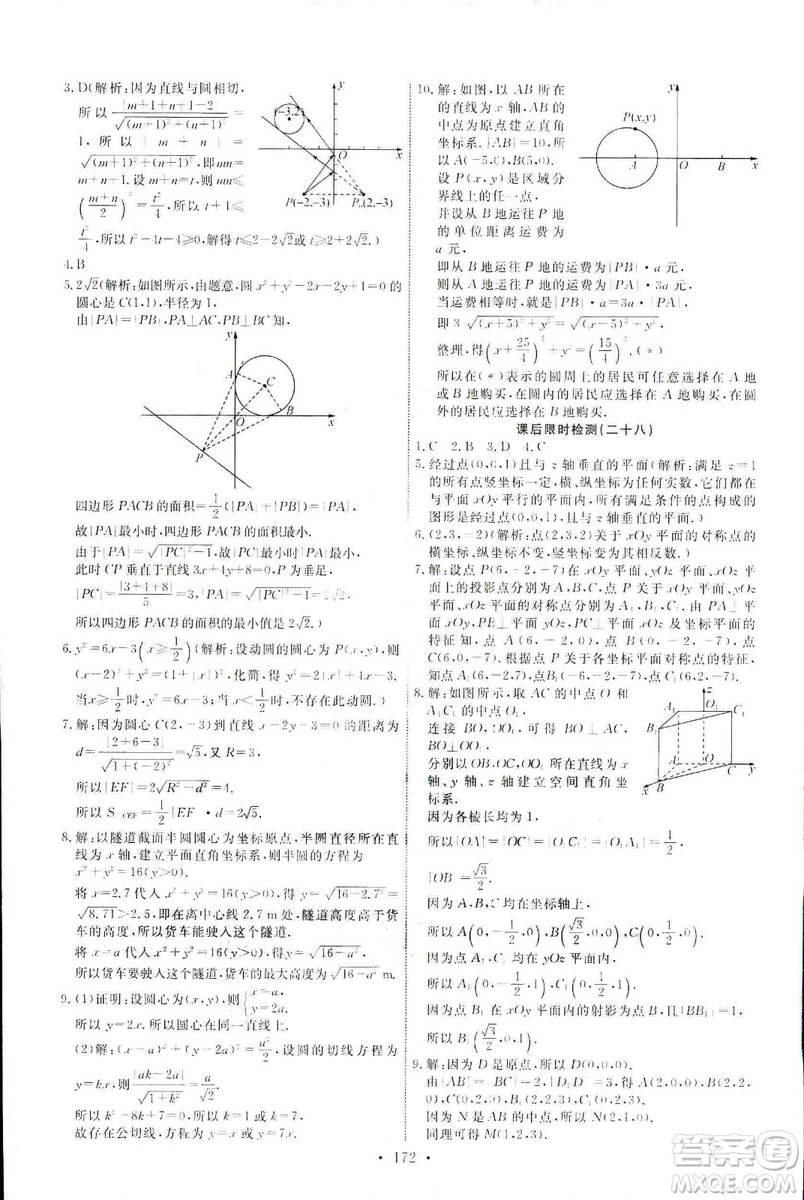 3. D(解析:因为直线与圆相切,
所以 |m+1+n+1-2| / √((m+1)²+(n+1)²) =
1,所以 |m+n| =
√((m+1)²+(n+1)²),即mn=
m+n+1,
(-3,2)
y
O
x
P(-2,-3)
(2,-3)
((m+n)/2)² = t²/4,所以 t+1≤
t²/4,所以 t²-4t-4≥0,解得 t≤2-2√2 或 t≥2+2√2.)
4. B
5. 2√2(解析:如图所示,由题意,圆 x²+y²-2x-2y+1=0的
圆心是C(1,1),半径为1,
由|PA|=|PB|,PA⊥AC,PB⊥BC知,
y
A
C
O
B
x
P
四边形PACB的面积=1/2(|PA|+|PB|)=|PA|,
故|PA|最小时,四边形PACB的面积最小.
由于|PA|=√(|PC|²-1),故|PC|最小时|PA|最小,
此时CP垂直于直线3x+4y+8=0,P为垂足,
|PC|=|3+4+8|/5=3,|PA|=√(|PC|²-1)=2√2,
所以四边形PACB的面积的最小值是2√2.)
6. y²=6x-3(x≥1/2)(解析:设动圆的圆心为P(x,y),则
(x-2)²+y²=(|x|+1)²,化简,得y²=2|x|+4x-3.
当x≥1/2时,y²=6x-3;当x<1/2时,无轨迹.)
7. 解:因为圆心C(2,-3)到直线x-2y-3=0的距离为
d=|2+6-3|/√(1+(-2)²)=√5,又R=3,
所以|EF|=2√(R²-d²)=4.
所以S =1/2|EF|·d=2√5.
8. 解:以隧道截面半圆圆心为坐标原点,半圆直径所在直
线为x轴,建立平面直角坐标系,则半圆的方程为
x²+y²=16(y≥0).
将x=2.7代入x²+y²=16(y≥0),得y=√(16-2.7²)=
√8.71>2.5,即在离中心线2.7 m处,隧道高度高于货
车的高度,所以货车能驶入这个隧道.
将x=a代入x²+y²=16(y≥0),得y=√(16-a²).
所以货车要驶入这个隧道,货车的最大高度为√(16-a²) m.
9. (1)证明:设圆心为(x,y),则{x=a, y=2a.
所以y=2x,所以圆心在同一直线上.
(2)解:(x-a)²+(y-2a)²=a²/2,设圆的切线方程为
y=kx,则|ak-2a|/√(1+k²)=a/√2.
所以k²-8k+7=0,所以k=1或k=7.
故存在公切线,方程为y=x或y=7x.
10. 解:如图,以AB所在
的直线为x轴,AB的
中点为原点建立直角
坐标系.|AB|=10,所
以A(-5,0),B(5,0).
设P(x,y)是区域分
界线上的任一点,
并设从B地运往P地
的单位距离运费为a元,
P(x,y)
A
O
B
x
y
即从B地运往P地的运费为|PB|·a元.
则从A地运往P地的运费为|PA|·3a元.
当运费相等时,|PB|·a=3a·|PA|,
即3√((x+5)²+y²)=√((x-5)²+y²).
整理,得(x+25/4)²+y²=(15/4)².(*)
所以在(*)表示的圆周上的居民可任意选择在A地
或B地购买,在圆内的居民应选择在A地购买,在圆
外的居民应选择在B地购买.
课后限时检测(二十八)
1. C 2. B 3. D 4. C
5. 经过点(0,0,1)且与z轴垂直的平面(解析:满足z=1
的所有点竖坐标一定,横、纵坐标为任何实数,这些点在
与平面xOy平行的平面内,所有满足条件的点构成的
图形是经过点(0,0,1)且与z轴垂直的平面.)
6. (2,3,-2)(解析:点M关于xOy平面的对称点的
横坐标、纵坐标不变,竖坐标变为其相反数.)
7. 解:设点P(6,-2,-7)在xOy平面、yOz平面、xOz平
面上的投影点分别为A,B,C,点P关于xOy平面、yOz
平面、xOz平面的对称点分别为A₁,B₁,C₁.由PA⊥平
面xOy,PB⊥平面yOz,PC⊥平面xOz及坐标平面的
特征知,点A(6,-2,0),点B(0,-2,-7),点
C(6,0,-7).根据点P关于各平面对称点的特征,可
知点A₁(6,-2,7),B₁(-6,-2,-7),C₁(6,2,-7).
8. 解:如图所示,取AC的中点O和
A₁C₁的中点O₁,
连接BO,OO₁,
可得BO⊥AC,OO₁⊥AC,
OO₁⊥BO,
分别以OB,OC,OO₁所在直线为x
轴、y轴、z轴建立空间直角坐
标系.
因为各棱长均为1,
所以|OA|=|OC|=|O₁C₁|=|O₁A₁|=1/2,
|OB|=√3/2.
因为A,B,C均在坐标轴上,
所以A(0,-1/2,0),B(√3/2,0,0),C(0,1/2,0).
因为点A₁,C₁在yOz平面内,
所以A₁(0,-1/2,1),C₁(0,1/2,1).
因为点B₁在xOy平面内的射影为点B,且|BB₁|=1,
所以B₁(√3/2,0,1).
9. 解:因为D是原点,所以D(0,0,0).
由|AB|=|BC|=|D₁D|=2,得A(2,0,0),B(2,2,0),
C(0,2,0),
因为N是AB的中点,所以N(2,1,0).
同理可得M(1,2,1).
· 172 ·
答案圈
MXQE.COM